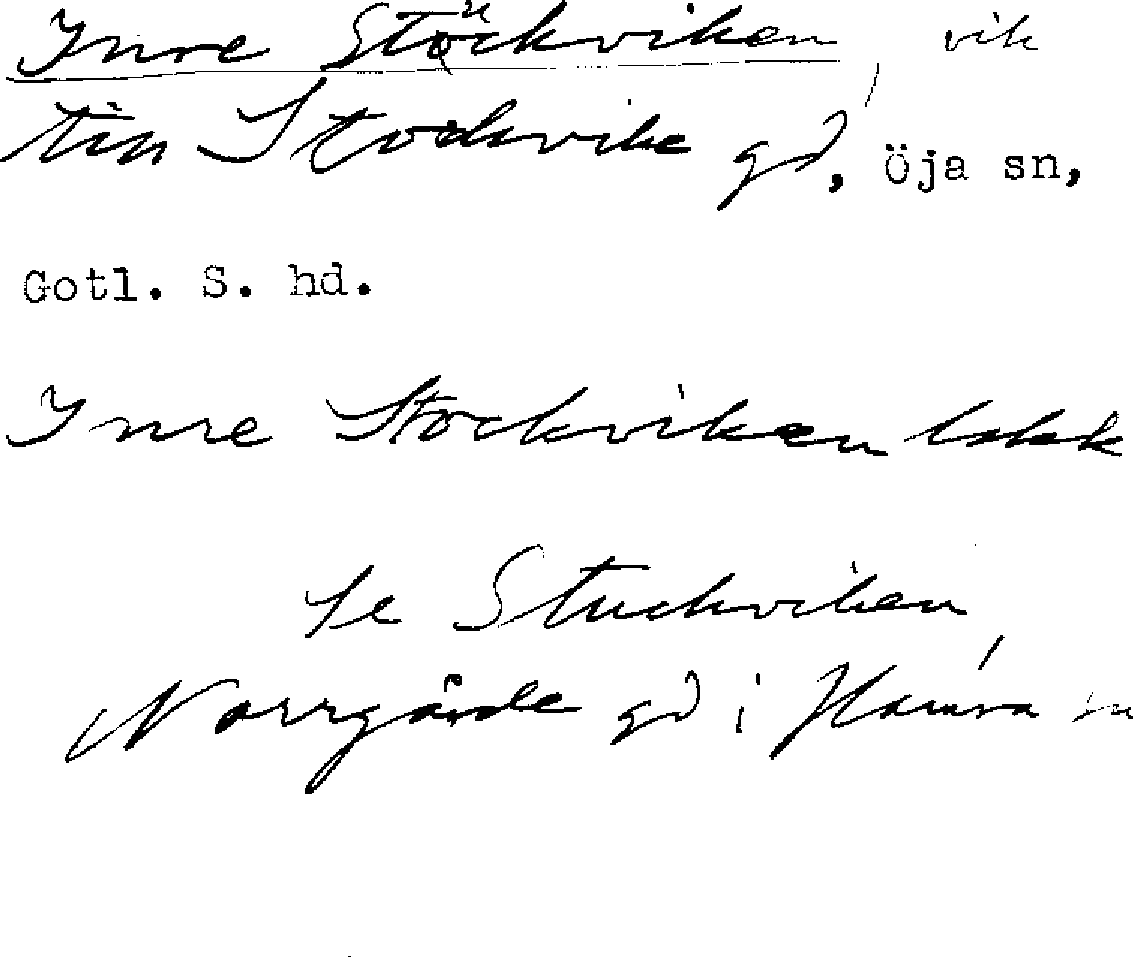 Ynre Stuckviken, vik
till Stockvike gd, Öja sn,
Gotl. S. hd.
Ynre Stockviken
Se Stuckviken,
Norrgårde gd i Hamra sn